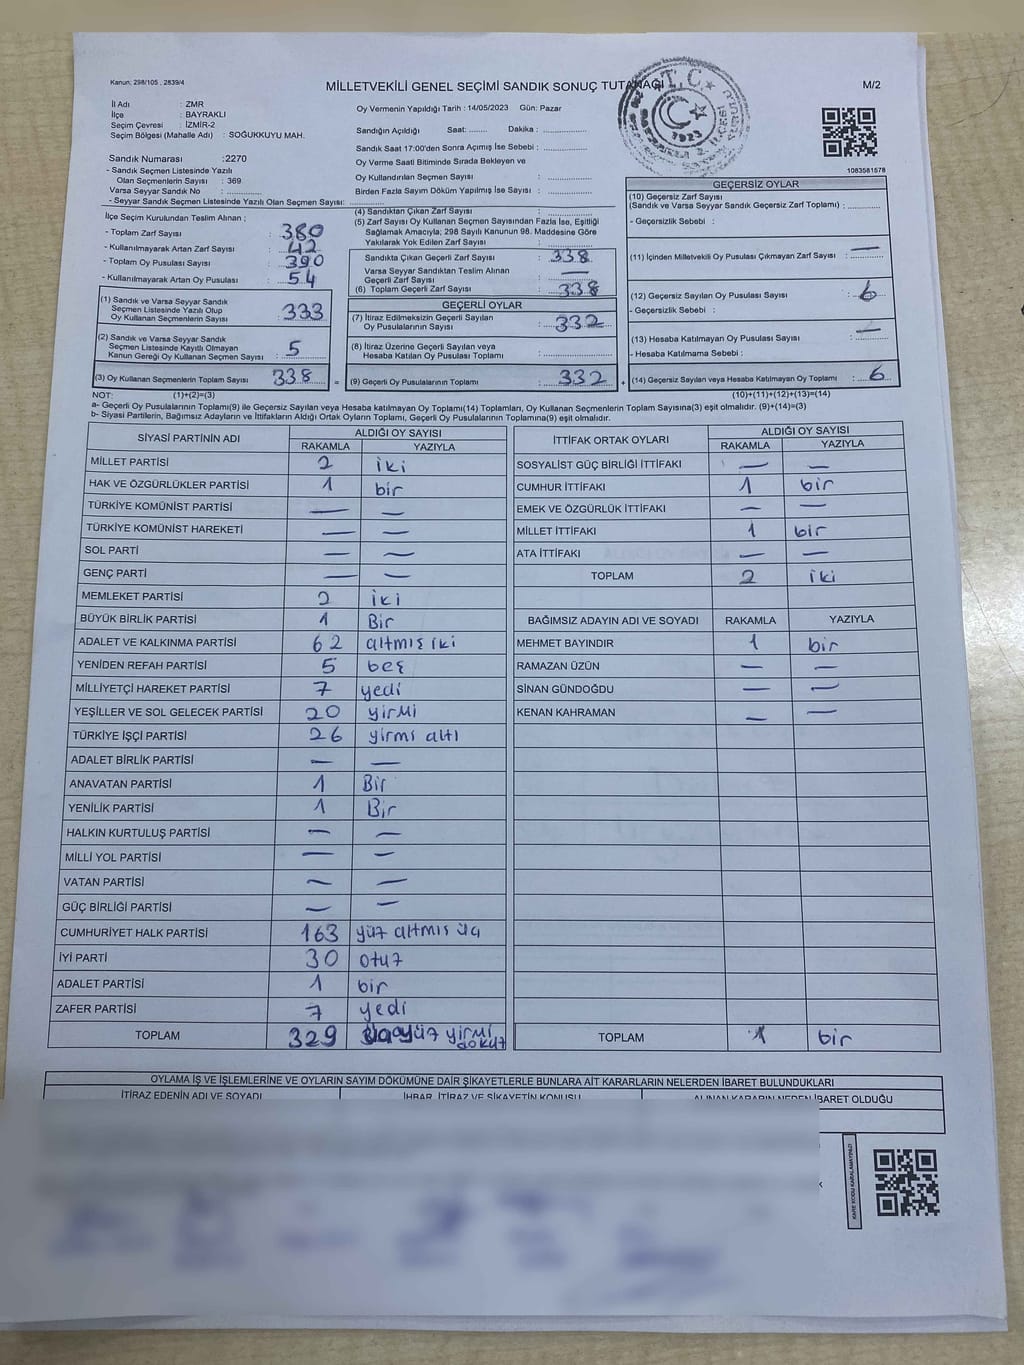 Kanun: 298/105 , 2839/4
MİLLETVEKİLİ GENEL SEÇİMİ SANDIK SONUÇ TUTANAĞI
M/2
İl Adı : ZMR
İlçe : BAYRAKLI
Seçim Çevresi : İZMİR-2
Seçim Bölgesi (Mahalle Adı) : SOĞUKKUYU MAH.
Oy Vermenin Yapıldığı Tarih : 14/05/2023 Gün: Pazar
Sandığın Açıldığı Saat: ........ Dakika : ....................
Sandık Saat 17:00'den Sonra Açımış İse Sebebi : ....................
Oy Verme Saati Bitiminde Sırada Bekleyen ve
Oy Kullandırılan Seçmen Sayısı : ....................
Birden Fazla Sayım Döküm Yapılmış İse Sayısı : ....................
T.C.
1923
1083581578
Sandık Numarası :2270
- Sandık Seçmen Listesinde Yazılı
Olan Seçmenlerin Sayısı : 369
Varsa Seyyar Sandık No : ..............
- Seyyar Sandık Seçmen Listesinde Yazılı Olan Seçmen Sayısı: ....................
İlçe Seçim Kurulundan Teslim Alınan ;
- Toplam Zarf Sayısı : 380
- Kullanılmayarak Artan Zarf Sayısı : 42
- Toplam Oy Pusulası Sayısı : 390
- Kullanılmayarak Artan Oy Pusulası : 54
(1) Sandık ve Varsa Seyyar Sandık
Seçmen Listesinde Yazılı Olup
Oy Kullanan Seçmenlerin Sayısı : 333
(2) Sandık ve Varsa Seyyar Sandık
Seçmen Listesinde Kayıtlı Olmayan
Kanun Gereği Oy Kullanan Seçmen Sayısı : 5
(3) Oy Kullanan Seçmenlerin Toplam Sayısı 338 =
(4) Sandıktan Çıkan Zarf Sayısı : ..............
(5) Zarf Sayısı Oy Kullanan Seçmen Sayısından Fazla İse, Eşitliği
Sağlamak Amacıyla; 298 Sayılı Kanunun 98. Maddesine Göre
Yakılarak Yok Edilen Zarf Sayısı : ..............
Sandıkta Çıkan Geçerli Zarf Sayısı : 338
Varsa Seyyar Sandıktan Teslim Alınan
Geçerli Zarf Sayısı : —
(6) Toplam Geçerli Zarf Sayısı : 338
GEÇERLİ OYLAR
(7) İtiraz Edilmeksizin Geçerli Sayılan
Oy Pusulalarının Sayısı : 332
(8) İtiraz Üzerine Geçerli Sayılan veya
Hesaba Katılan Oy Pusulası Toplamı : ..............
(9) Geçerli Oy Pusulalarının Toplamı : 332 +
GEÇERSİZ OYLAR
(10) Geçersiz Zarf Sayısı
(Sandık ve Varsa Seyyar Sandık Geçersiz Zarf Toplamı) : ..........
- Geçersizlik Sebebi :
(11) İçinden Milletvekili Oy Pusulası Çıkmayan Zarf Sayısı : —
(12) Geçersiz Sayılan Oy Pusulası Sayısı : 6
- Geçersizlik Sebebi :
(13) Hesaba Katılmayan Oy Pusulası Sayısı : —
- Hesaba Katılmama Sebebi :
(14) Geçersiz Sayılan veya Hesaba Katılmayan Oy Toplamı : 6
NOT: (1)+(2)=(3) (10)+(11)+(12)+(13)=(14)
a- Geçerli Oy Pusulalarının Toplamı(9) ile Geçersiz Sayılan veya Hesaba katılmayan Oy Toplamı(14) Toplamları, Oy Kullanan Seçmenlerin Toplam Sayısına(3) eşit olmalıdır. (9)+(14)=(3)
b- Siyasi Partilerin, Bağımsız Adayların ve İttifakların Aldığı Ortak Oyların Toplamı, Geçerli Oy Pusulalarının Toplamına(9) eşit olmalıdır.
SİYASİ PARTİNİN ADI ALDIĞI OY SAYISI
RAKAMLA YAZIYLA
MİLLET PARTİSİ 2 iki
HAK VE ÖZGÜRLÜKLER PARTİSİ 1 bir
TÜRKİYE KOMÜNİST PARTİSİ — —
TÜRKİYE KOMÜNİST HAREKETİ — —
SOL PARTİ — —
GENÇ PARTİ — —
MEMLEKET PARTİSİ 2 iki
BÜYÜK BİRLİK PARTİSİ 1 Bir
ADALET VE KALKINMA PARTİSİ 62 altmış iki
YENİDEN REFAH PARTİSİ 5 beş
MİLLİYETÇİ HAREKET PARTİSİ 7 yedi
YEŞİLLER VE SOL GELECEK PARTİSİ 20 yirmi
TÜRKİYE İŞÇİ PARTİSİ 26 yirmi altı
ADALET BİRLİK PARTİSİ — —
ANAVATAN PARTİSİ 1 Bir
YENİLİK PARTİSİ 1 Bir
HALKIN KURTULUŞ PARTİSİ — —
MİLLİ YOL PARTİSİ — —
VATAN PARTİSİ — —
GÜÇ BİRLİĞİ PARTİSİ — —
CUMHURİYET HALK PARTİSİ 163 yüz altmış üç
İYİ PARTİ 30 otuz
ADALET PARTİSİ 1 bir
ZAFER PARTİSİ 7 yedi
TOPLAM 329 üçyüz yirmi
dokuz
İTTİFAK ORTAK OYLARI ALDIĞI OY SAYISI
RAKAMLA YAZIYLA
SOSYALİST GÜÇ BİRLİĞİ İTTİFAKI — —
CUMHUR İTTİFAKI 1 bir
EMEK VE ÖZGÜRLÜK İTTİFAKI — —
MİLLET İTTİFAKI 1 bir
ATA İTTİFAKI — —
TOPLAM 2 iki
BAĞIMSIZ ADAYIN ADI VE SOYADI RAKAMLA YAZIYLA
MEHMET BAYINDIR 1 bir
RAMAZAN ÜZÜN — —
SİNAN GÜNDOĞDU — —
KENAN KAHRAMAN — —
TOPLAM 1 bir
OYLAMA İŞ VE İŞLEMLERİNE VE OYLARIN SAYIM DÖKÜMÜNE DAİR ŞİKAYETLERLE BUNLARA AİT KARARLARIN NELERDEN İBARET BULUNDUKLARI
İTİRAZ EDENİN ADI VE SOYADI İHBAR, İTİRAZ VE ŞİKAYETİN KONUSU ALINAN KARARIN NEDEN İBARET OLDUĞU
KARE KODU KARALAMAYINIZ!